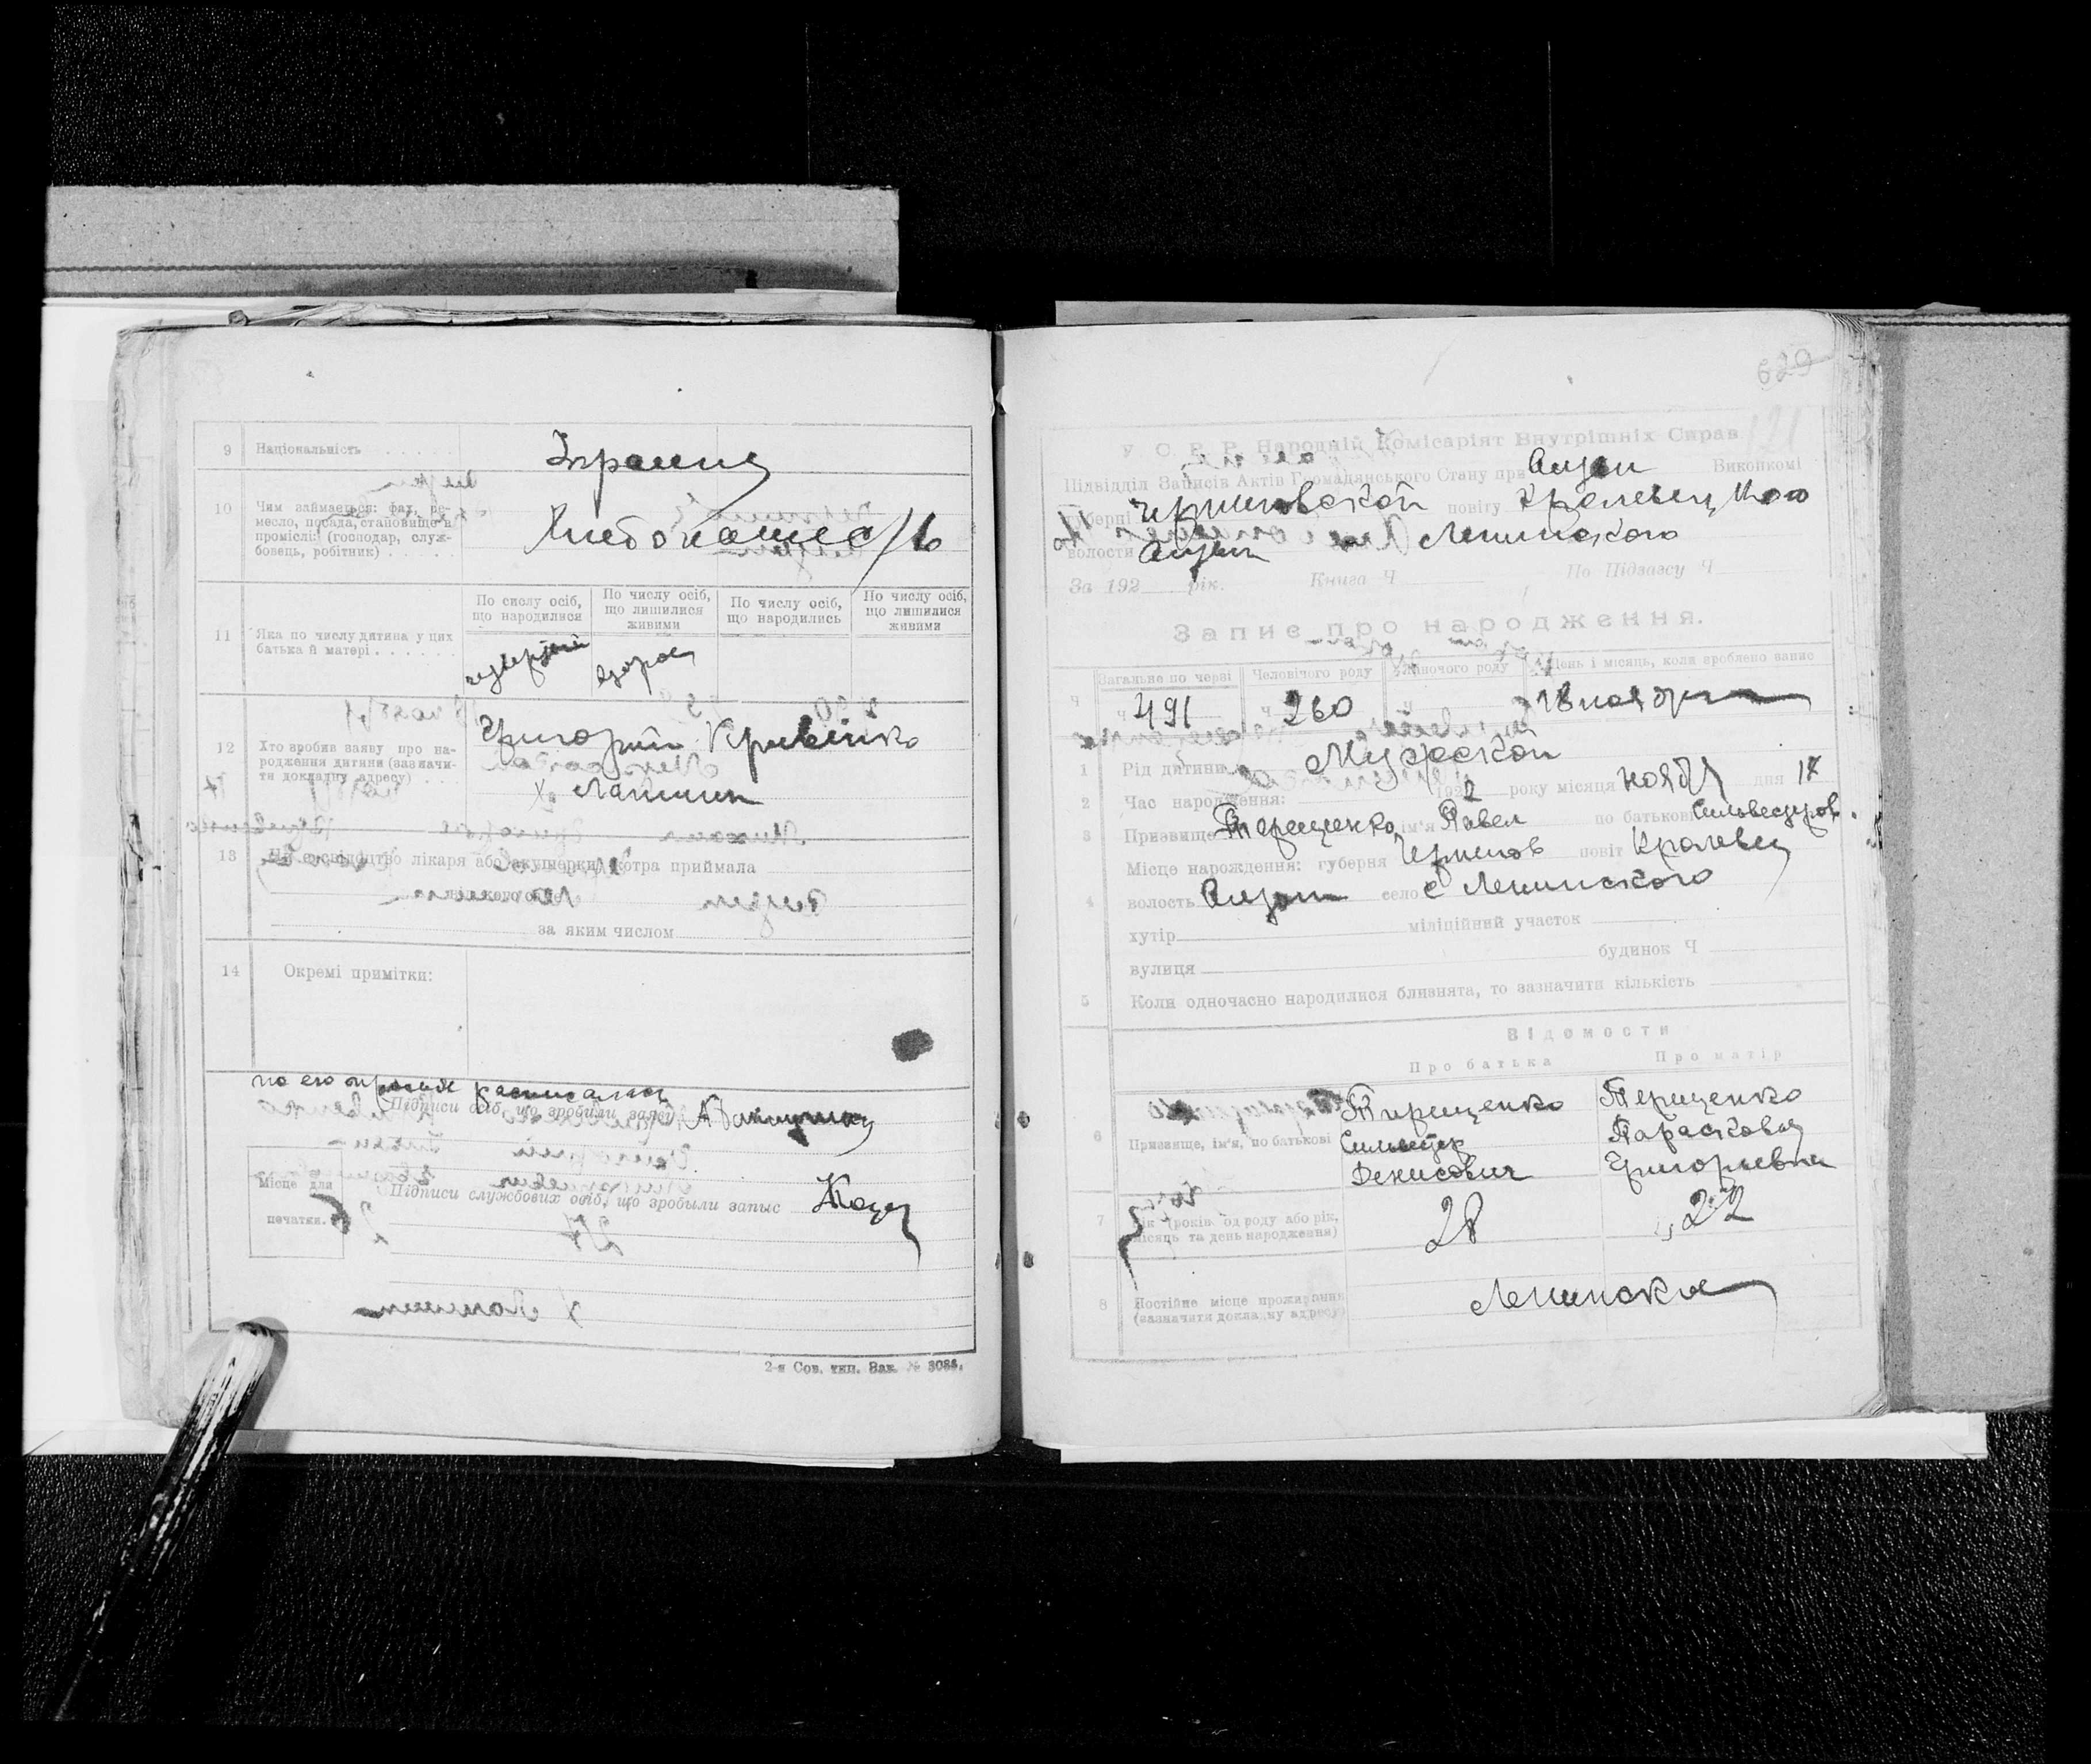 9 Національність . . . . .
Украинц
10 Чим займається: фах, ре-
месло, посада, становище в
промислі: (господар, служ-
бовець, робітник) . . . . .
Хлебопашес/во
11 Яка по числу дитина у цих
батька й матері . . . . . .
По числу осіб,
що народилися
По числу осіб,
що лишилися
живими
По числу осіб,
що народились
По числу осіб,
що лишилися
живими
12 Хто зробив заяву про на-
родження дитини (зазначи-
ти докладну адресу) . . .
Григорий Кривенко
х. Лапшин
13
лікаря або акушерки, котра приймала
за яким числом
14 Окремі примітки:
по его просьбе расписался
Підписи осіб, що зробили заяву
Місце для
печатки.
Підписи службових осіб, що зробыли запыс
2-я Сов. тип. Зак. № 3088.
629
У. С. Р. Р. Народній Комісаріят Внутрішніх Справ
Підвідділ Записів Актів Громадянського Стану при Виконкомі
губерні Черниговской повіту Кролевецкого
волости Ленинского
За 192 рік. Книга Ч По Підзагсу Ч
Запис про народження.
Загальне по черзі
Чоловічого роду
Жіночого роду
День і місяць, коли зроблено запис
Ч
ч 491 ч 260 ч 18 ноября
1 Рід дитини Мужской
2 Час народження: 1922 року місяця ноября дня 17
3 Призвище Терещенко ім'я Павел по батькові Сильвестров.
4 Місце нарождення: губерня Чернигов повіт Кролевец
волость село с Ленинского
хутір міліційний участок
вулиця будинок Ч
5 Коли одночасно народилися близнята, то зазначити кількість
Відомости
Про батька Про матір
6 Призвище, ім'я, по батькові
Терещенко
Сильвестр
Денисович
Терещенко
Парасковья
Григорьевна
7 Вік (років од роду або рік,
місяць та день народження)
28 22
8 Постійне місце проживання
(зазначити докладну адресу)
Ленинское